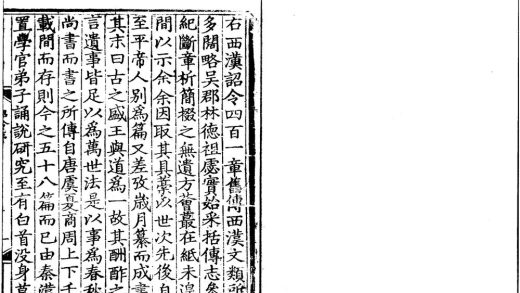 右西漢詔令四百一章舊傳西漢文類所
多闊略吳郡林德祖虙實始采括傳志參
紀斷章析簡掇之無遺方薈蕞在紙未遑
間以示余余因取其具藁以世次先後自
至平帝人別為篇又差攷歲月纂而成書
其末曰古之盛王與道為一故其酬酢之
言遺事皆足以為萬世法是以事為春秋
尚書而書之所傳自唐虞夏商周上下千
載間而存則今之五十八篇而已由秦漢
置學官弟子誦說研究至有白首没身莫